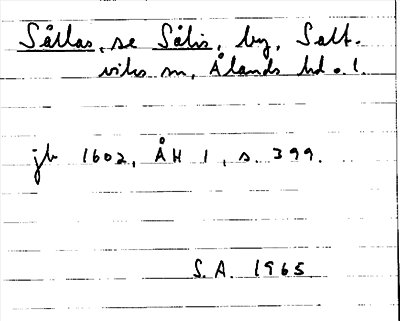 Såtlas, se Sålis, by, Salt-
viks sn, Ålands hd o. l.
jb 1602, ÅH 1, s. 399.
S.A. 1965